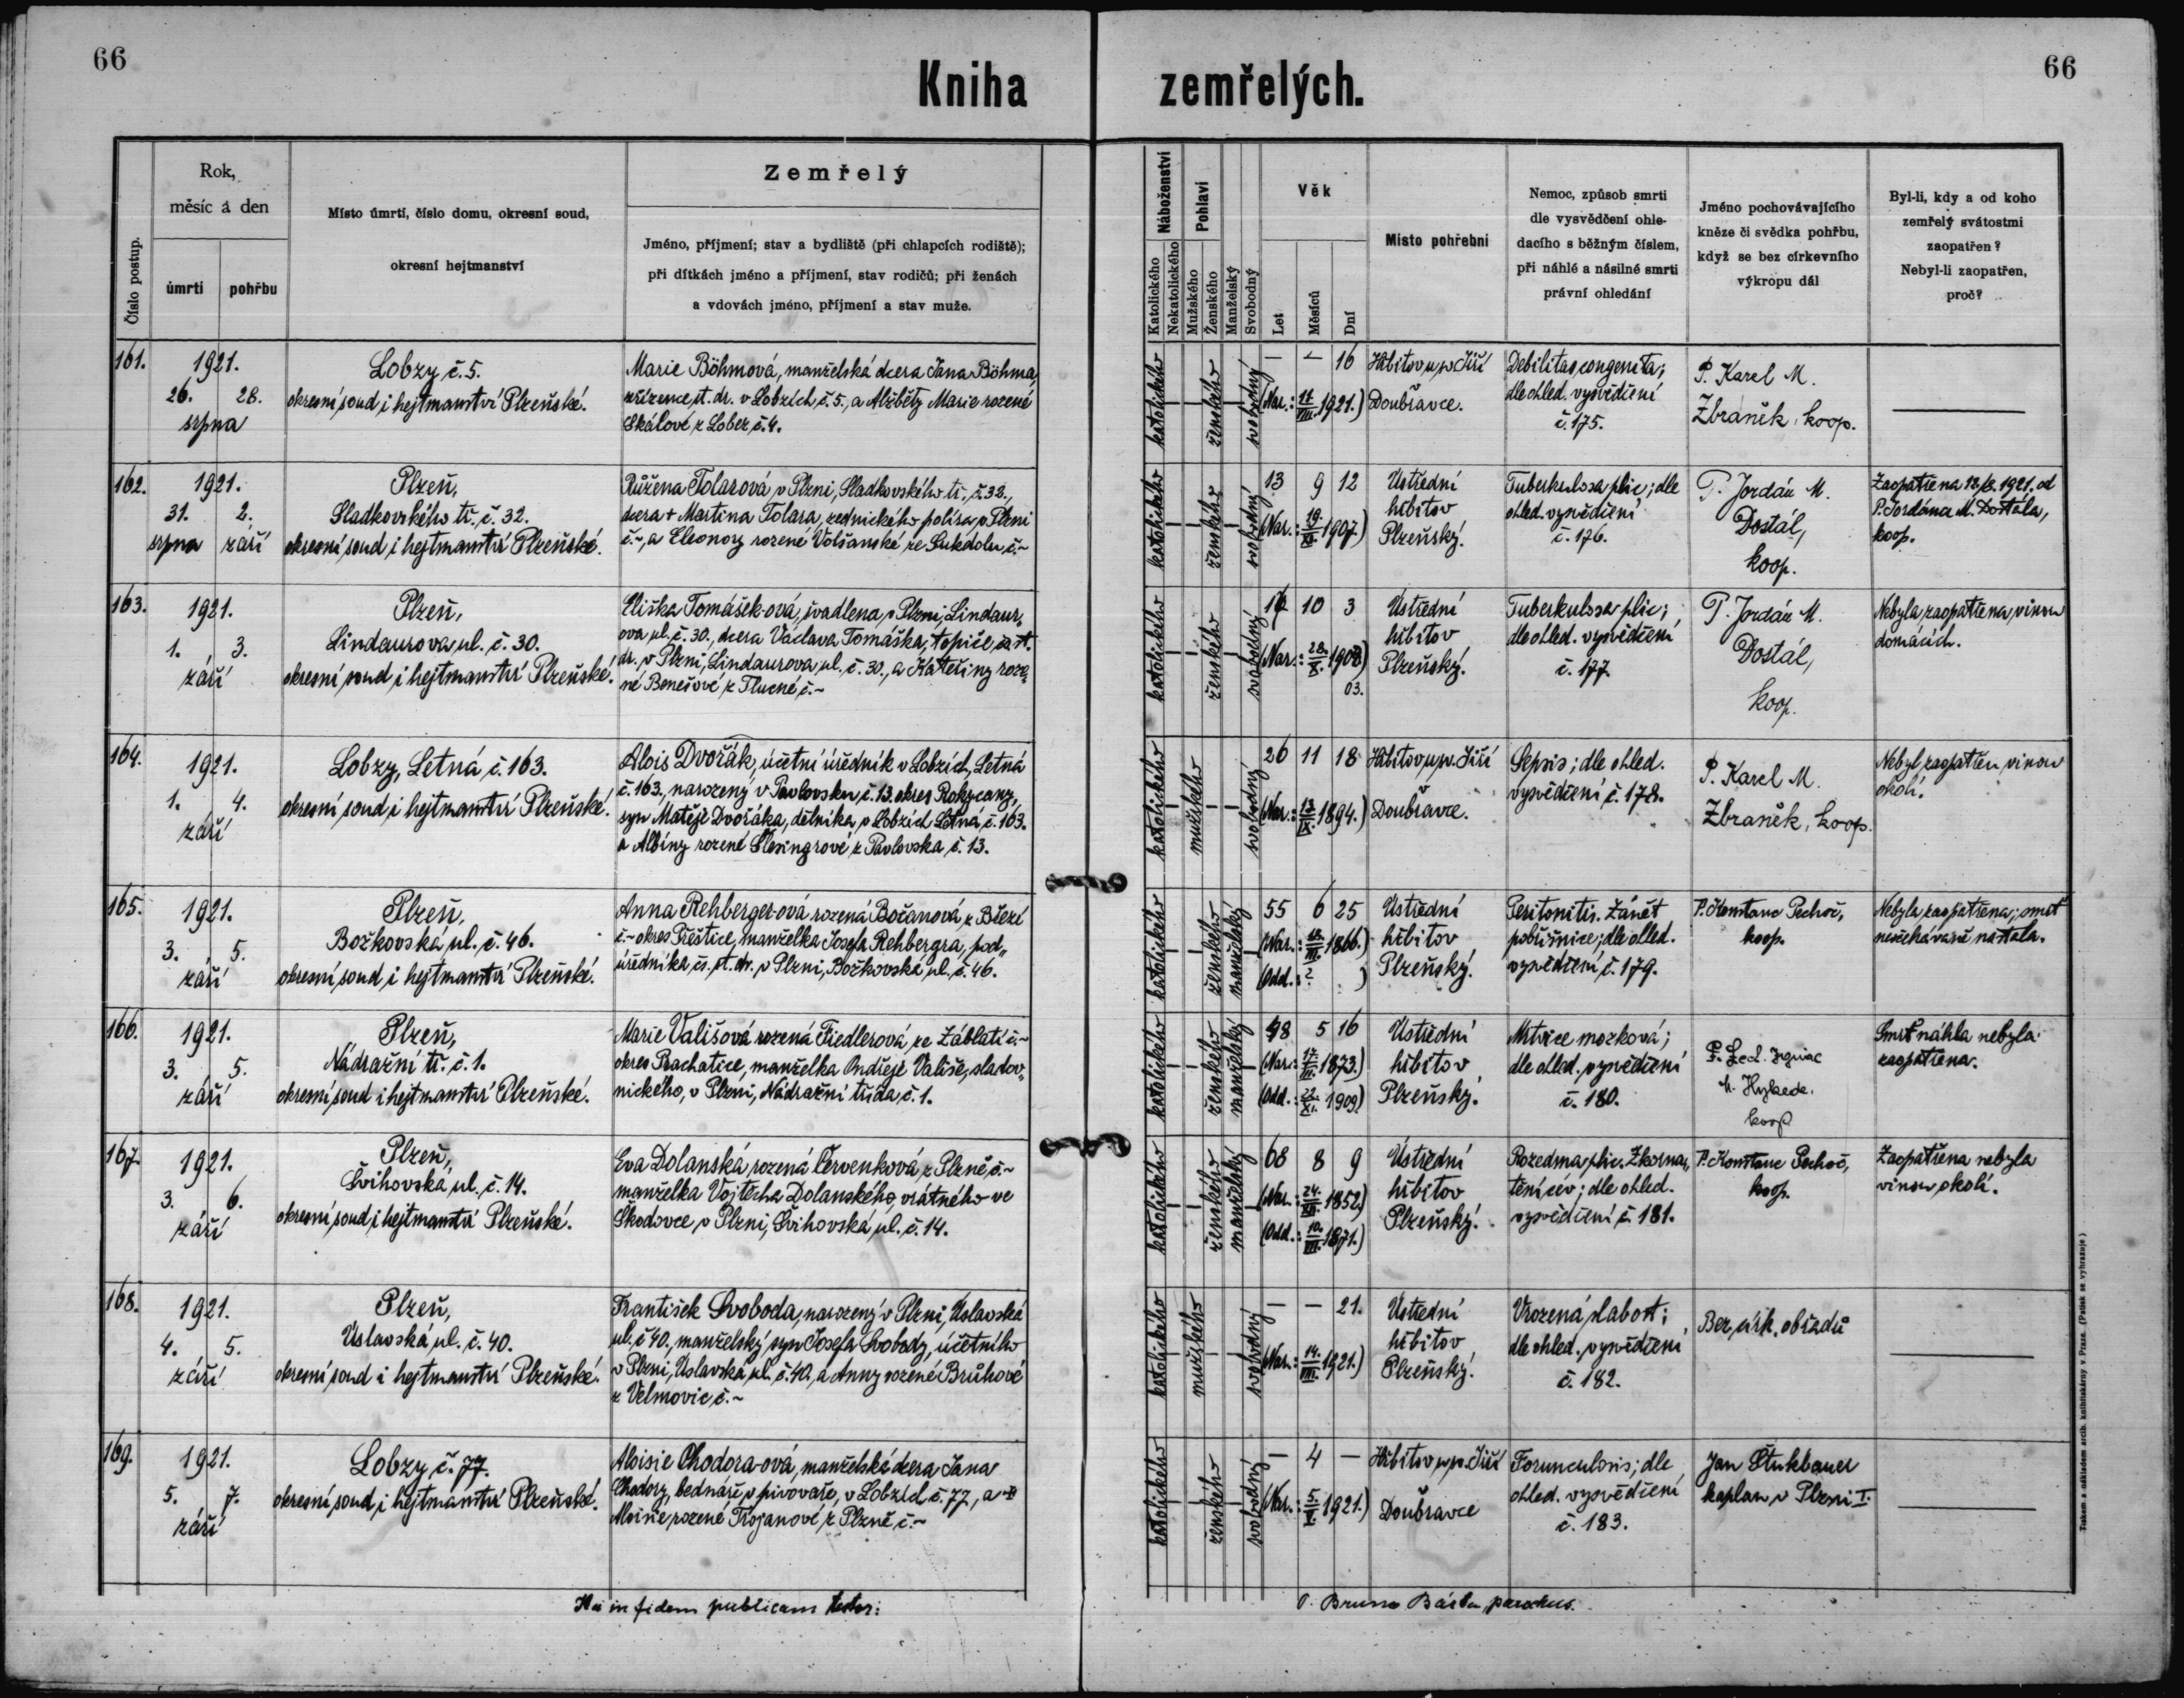 66
66
Kniha zemřelých.
Číslo postup.
Rok,
měsíc a den
úmrtí
pohřbu
Místo úmrtí, číslo domu, okresní soud,
okresní hejtmanství
Zemřelý
Jméno, příjmení; stav a bydliště (při chlapcích rodiště);
při dítkách jméno a příjmení, stav rodičů; při ženách
a vdovách jméno, příjmení a stav muže.
Náboženství
Katolického
Nekatolického
Pohlaví
Mužského
Ženského
Manželský
Svobodný
Věk
Let
Měsíců
Dní
Místo pohřební
Nemoc, způsob smrti
dle vysvědčení ohle-
dacího s běžným číslem,
při náhlé a násilné smrti
právní ohledání
Jméno pochovávajícího
kněze či svědka pohřbu,
když se bez církevního
výkropu dál
Byl-li, kdy a od koho
zemřelý svátostmi
zaopatřen?
Nebyl-li zaopatřen,
proč?
161.
1921.
26. 28.
srpna
Lobzy č. 5.
okresní soud i hejtmanství Plzeňské.
Marie Böhmová, manželská dcera Jana Böhma,
zřízence st. dr. v Lobzích č. 5., a Alžběty Marie rozené
Skálové z Lobez č. 4.
katolického
ženského
svobodný
— — 16
(Nar.: 11./VIII. 1921.)
Hřbitov u sv. Jiří
Doubravce.
Debilitas congenita;
dle ohled. vysvědčení
č. 175.
P. Karel M.
Zbraněk, koop.
—
162.
1921.
31. 2.
srpna září
Plzeň,
Sladkovského tř. č. 32.
okresní soud i hejtmanství Plzeňské.
Růžena Tolarová v Plzni, Sladkovského tř. č. 32.,
dcera + Martina Tolara, zednického políra v Plzni
č. ~, a Eleonory rozené Volšanské ze Sukdolu č. ~
katolického
ženského
svobodný
13 9 12
(Nar.: 19./XI. 1907.)
Ústřední
hřbitov
Plzeňský.
Tuberkulosa plic; dle
ohled. vysvědčení
č. 176.
P. Jordán M.
Dostál,
koop.
Zaopatřena 12./8. 1921. od
P. Jordána M. Dostála,
koop.
163.
1921.
1. 3.
září
Plzeň,
Lindaurova ul. č. 30.
okresní soud i hejtmanství Plzeňské.
Eliška Tomášek-ová, švadlena v Plzni, Lindaur„
ova ul. č. 30., dcera Václava Tomáška, topiče st.
dr. v Plzni, Lindaurova ul. č. 30., a Kateřiny roze„
né Benešové z Tlucné č. ~
katolického
ženského
svobodný
17 10 3
(Nar.: 28./X. 1903)
03.
Ústřední
hřbitov
Plzeňský.
Tuberkulosa plic;
dle ohled. vysvědčení
č. 177.
P. Jordán M.
Dostál,
koop.
Nebyla zaopatřena vinou
domácích.
164.
1921.
1. 4.
září
Lobzy, Letná č. 163.
okresní soud i hejtmanství Plzeňské.
Alois Dvořák, účetní úředník v Lobzích, Letná
č. 163., narozený v Pavlovsku č. 13. okres Rokycany,
syn Matěje Dvořáka, dělníka v Lobzích Letná č. 163.
a Albíny rozené Šlesingrové z Pavlovska č. 13.
katolického
mužského
svobodný
26 11 18
(Nar.: 13./IX. 1894.)
Hřbitov u sv. Jiří
Doubravce.
Sepsis; dle ohled.
vysvědčení č. 178.
P. Karel M.
Zbraněk, koop.
Nebyl zaopatřen vinou
okolí.
165.
1921.
3. 5.
září
Plzeň,
Božkovská ul. č. 46.
okresní soud i hejtmanství Plzeňské.
Anna Rehberger-ová rozená Bočanová z Březí
č. ~ okres Přeštice, manželka Josefa Rehbergra, pod„
úředníka čs. st. dr. v Plzni, Božkovská ul. č. 46.
katolického
ženského
manželský
55 6 25
(Nar.: 1866.)
(Odd.: ? )
Ústřední
hřbitov
Plzeňský.
Peritonitis. Zánět
pobřišnice; dle ohled.
vysvědčení č. 179.
P. Konstanc Pechoč,
koop.
Nebyla zaopatřena; smrt
neočekávaně nastala.
166.
1921.
3. 5.
září
Plzeň,
Nádražní tř. č. 1.
okresní soud i hejtmanství Plzeňské.
Marie Vališová rozená Fiedlerová ze Záblatí č. ~
okres Prachatice, manželka Ondřeje Vališe, sladov„
nického, v Plzni, Nádražní třída č. 1.
katolického
ženského
manželský
48 5 16
(Nar.: 17./III. 1873.)
(Odd.: 22./XI. 1909.)
Ústřední
hřbitov
Plzeňský.
Mrtvice mozková;
dle ohled. vysvědčení
č. 180.
koop
Smrť náhlá nebyla
zaopatřena.
167.
1921.
3. 6.
září
Plzeň,
Švihovská ul. č. 14.
okresní soud i hejtmanství Plzeňské.
Eva Dolanská rozená Červenková z Plzně č. ~
manželka Vojtěcha Dolanského, vrátného ve
Škodovce v Plzni, Švihovská ul. č. 14.
katolického
ženského
manželský
68 8 9
(Nar.: 24./XII. 1852.)
(Odd.: 10./VII. 1871.)
Ústřední
hřbitov
Plzeňský.
Rozedma plic. Zkorna„
tění cév; dle ohled.
vysvědčení č. 181.
P. Konstanc Pechoč,
koop.
Zaopatřena nebyla
vinou okolí.
168.
1921.
4. 5.
září
Plzeň,
Úslavská ul. č. 40.
okresní soud i hejtmanství Plzeňské.
František Svoboda, narozený v Plzni, Úslavská
ul. č 40., manželský syn Josefa Svobody, účetního
v Plzni, Úslavská ul. č. 40, a Anny rozené Brůhové
z Velmovic č. ~
katolického
mužského
svobodný
— — 21.
(Nar.: 14./VIII. 1921.)
Ústřední
hřbitov
Plzeňský.
Vrozená slabost;
dle ohled. vysvědčení
č. 182.
Bez církh. obřadů
—
169.
1921.
5. 7.
září
Lobzy č. 77.
okresní soud i hejtmanství Plzeňské.
Aloisie Chodora-ová, manželská dcera Jana
Chodory, bednáře v pivovaře, v Lobzích č. 77, a
Aloisie rozené Trojanové z Plzně č. ~
katolického
ženského
svobodný
— 4 —
(Nar.: 5./V. 1921.)
Hřbitov u sv. Jiří
Doubravce
Forunculosis; dle
ohled. vysvědčení
č. 183.
Jan Štukbauer
kaplan v Plzni I.
—
in fidem publicam testor:
P. Bruno Bárta, parochus.
Tiskem a nákladem arcib. knihtiskárny v Praze. (Patisk se vyhrazuje)